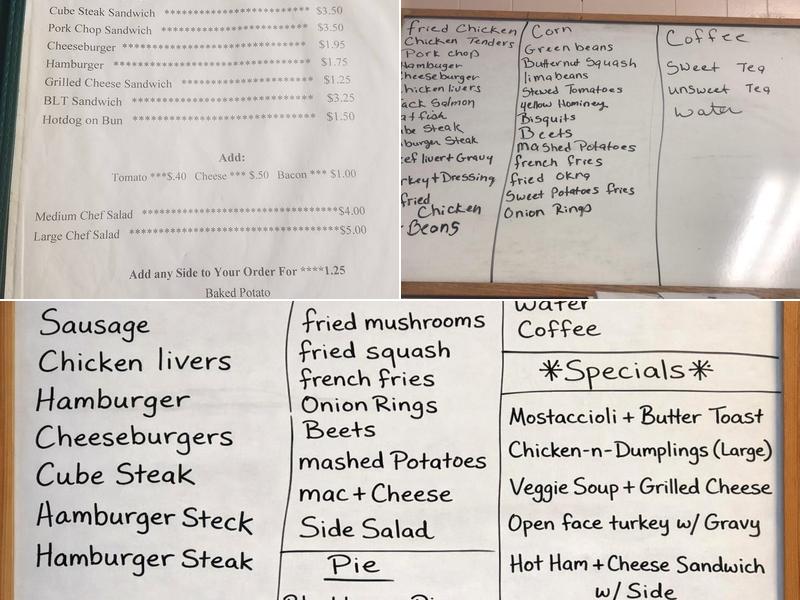 Cube Steak Sandwich ********************** $3.50
Pork Chop Sandwich ********************** $3.50
Cheeseburger **************************** $1.95
Hamburger ***************************** $1.75
Grilled Cheese Sandwich ****************** $1.25
BLT Sandwich ************************** $3.25
Hotdog on Bun ************************* $1.50
Add:
Tomato ***$.40 Cheese *** $.50 Bacon *** $1.00
Medium Chef Salad **********************************$4.00
Large Chef Salad ***********************************$5.00
Add any Side to Your Order For ****1.25
Baked Potato
fried Chicken
Chicken Tenders
Pork chop
Hambuger
heeseburger
hicken livers
ack Salmon
at fish
be Steak
burger Steak
ef liver+ Gravy
rkey + Dressing
fried
Chicken
Beans
Corn
Green beans
Butternut Squash
lima beans
Stewed Tomatoes
yellow Hominey
Bisquits
Beets
mashed Potatoes
french fries
fried okra
Sweet Potatoes fries
Onion Rings
Coffee
Sweet Tea
unsweet Tea
Water
Sausage
Chicken livers
Hamburger
Cheeseburgers
Cube Steak
Hamburger Steck
Hamburger Steak
fried mushrooms
fried squash
french fries
Onion Rings
Beets
mashed Potatoes
mac + Cheese
Side Salad
Pie
Water
Coffee
*Specials*
Mostaccioli + Butter Toast
Chicken-n-Dumplings (Large)
Veggie Soup + Grilled Cheese
Open face turkey w/ Gravy
Hot Ham + Cheese Sandwich
w/ Side